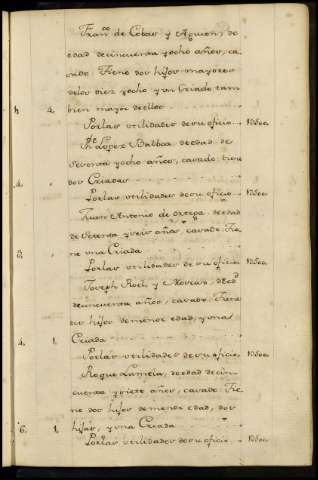 Fran.co de Cobas y Aguion, de
edad de cincuenta y ocho años, ca-
sado. Tiene dos hijos mayores
delos diez y ocho y un Criado tam-
bien mayor de ellos
h 4.
Por las utilidades de su oficio
Ph.e Lopez Balboa, de edad de
Sesenta y ocho años, casado, tiene
dos Criadas
4.
Por las utilidades de su oficio
Juan Antonio de Ortega, de edad
de Setenta y seis años, casado. Tie-
ne una Criada
2.
Por las utilidades de su oficio
Joseph Roel y, de edad
de cincuenta años, casado. Tiene
dos hijos de menor edad, y una
Criada
4. 1.
Por las utilidades de su oficio,
Roque Lamela, de edad de cin-
cuenta y siete años, casado. Tie-
ne dos hijos de menor edad, dos
hijas, y una Criada
6. 1.
Por las utilidades de su oficio